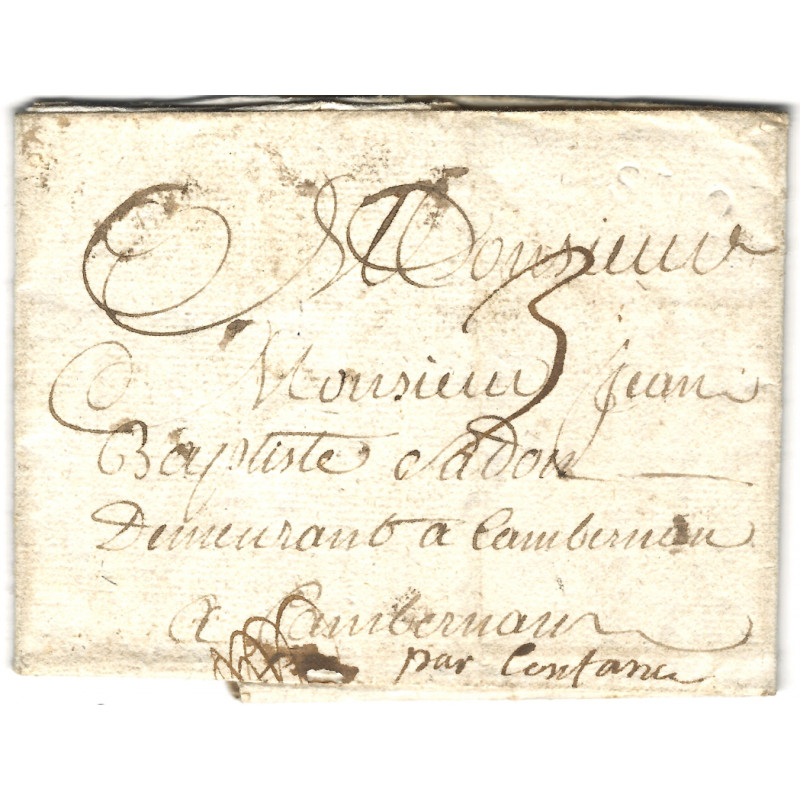 Monsieur
3
Monsieur jean
Baptiste Sadot
Demeurant a Cambernon
a Cambernon
par Coutance